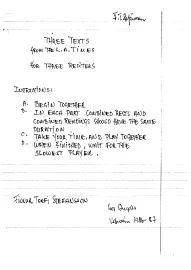 THREE TEXTS
from THE L.A. TIMES
FOR THREE RECITERS
INSTRUCTIONS:
A. BEGIN TOGETHER
B. IN EACH PART COMBINED RESTS AND
COMBINED READINGS SHOULD HAVE THE SAME
DURATION
C. TAKE YOUR TIME, AND PLAY TOGETHER
D. WHEN FINISHED, WAIT FOR THE
SLOWEST PLAYER.
FINNUR TORFI STEFÁNSSON
Los Angeles